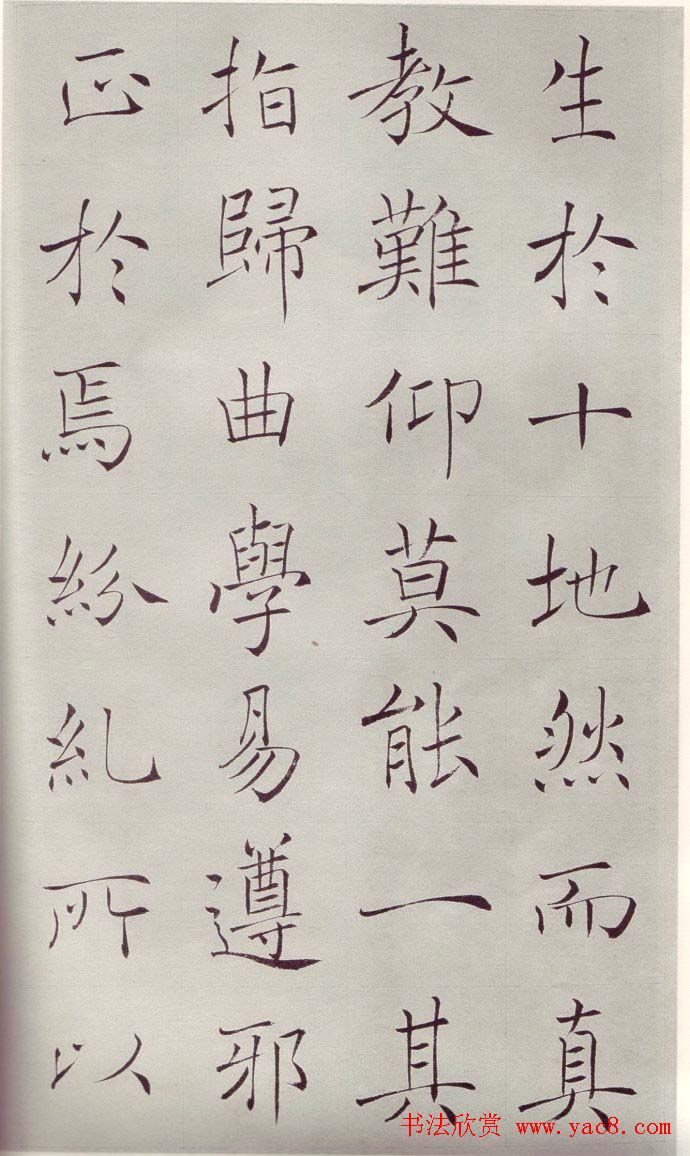 生於十地然而真
教難仰莫能一其
指歸曲學易遵邪
正於焉紛糺所以
书法欣赏 www.yac8.com